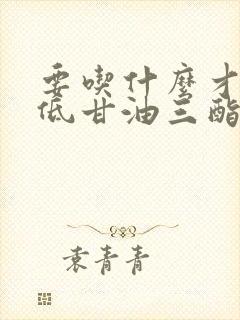 要喫什麼才
低甘油三酯
袁青青